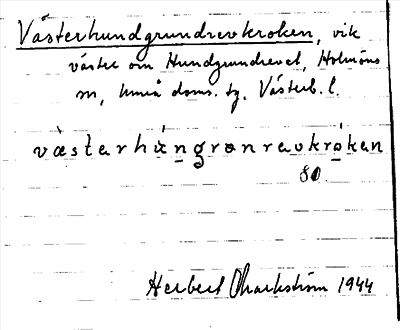 Västerhundgrundrevkroken, vik
väster om Hundgrundrevet, Holmöns
sn, Umeå doms. tg. Västerb. l.
västarhúngrønrevkróken
80
Herbert Markström 1944